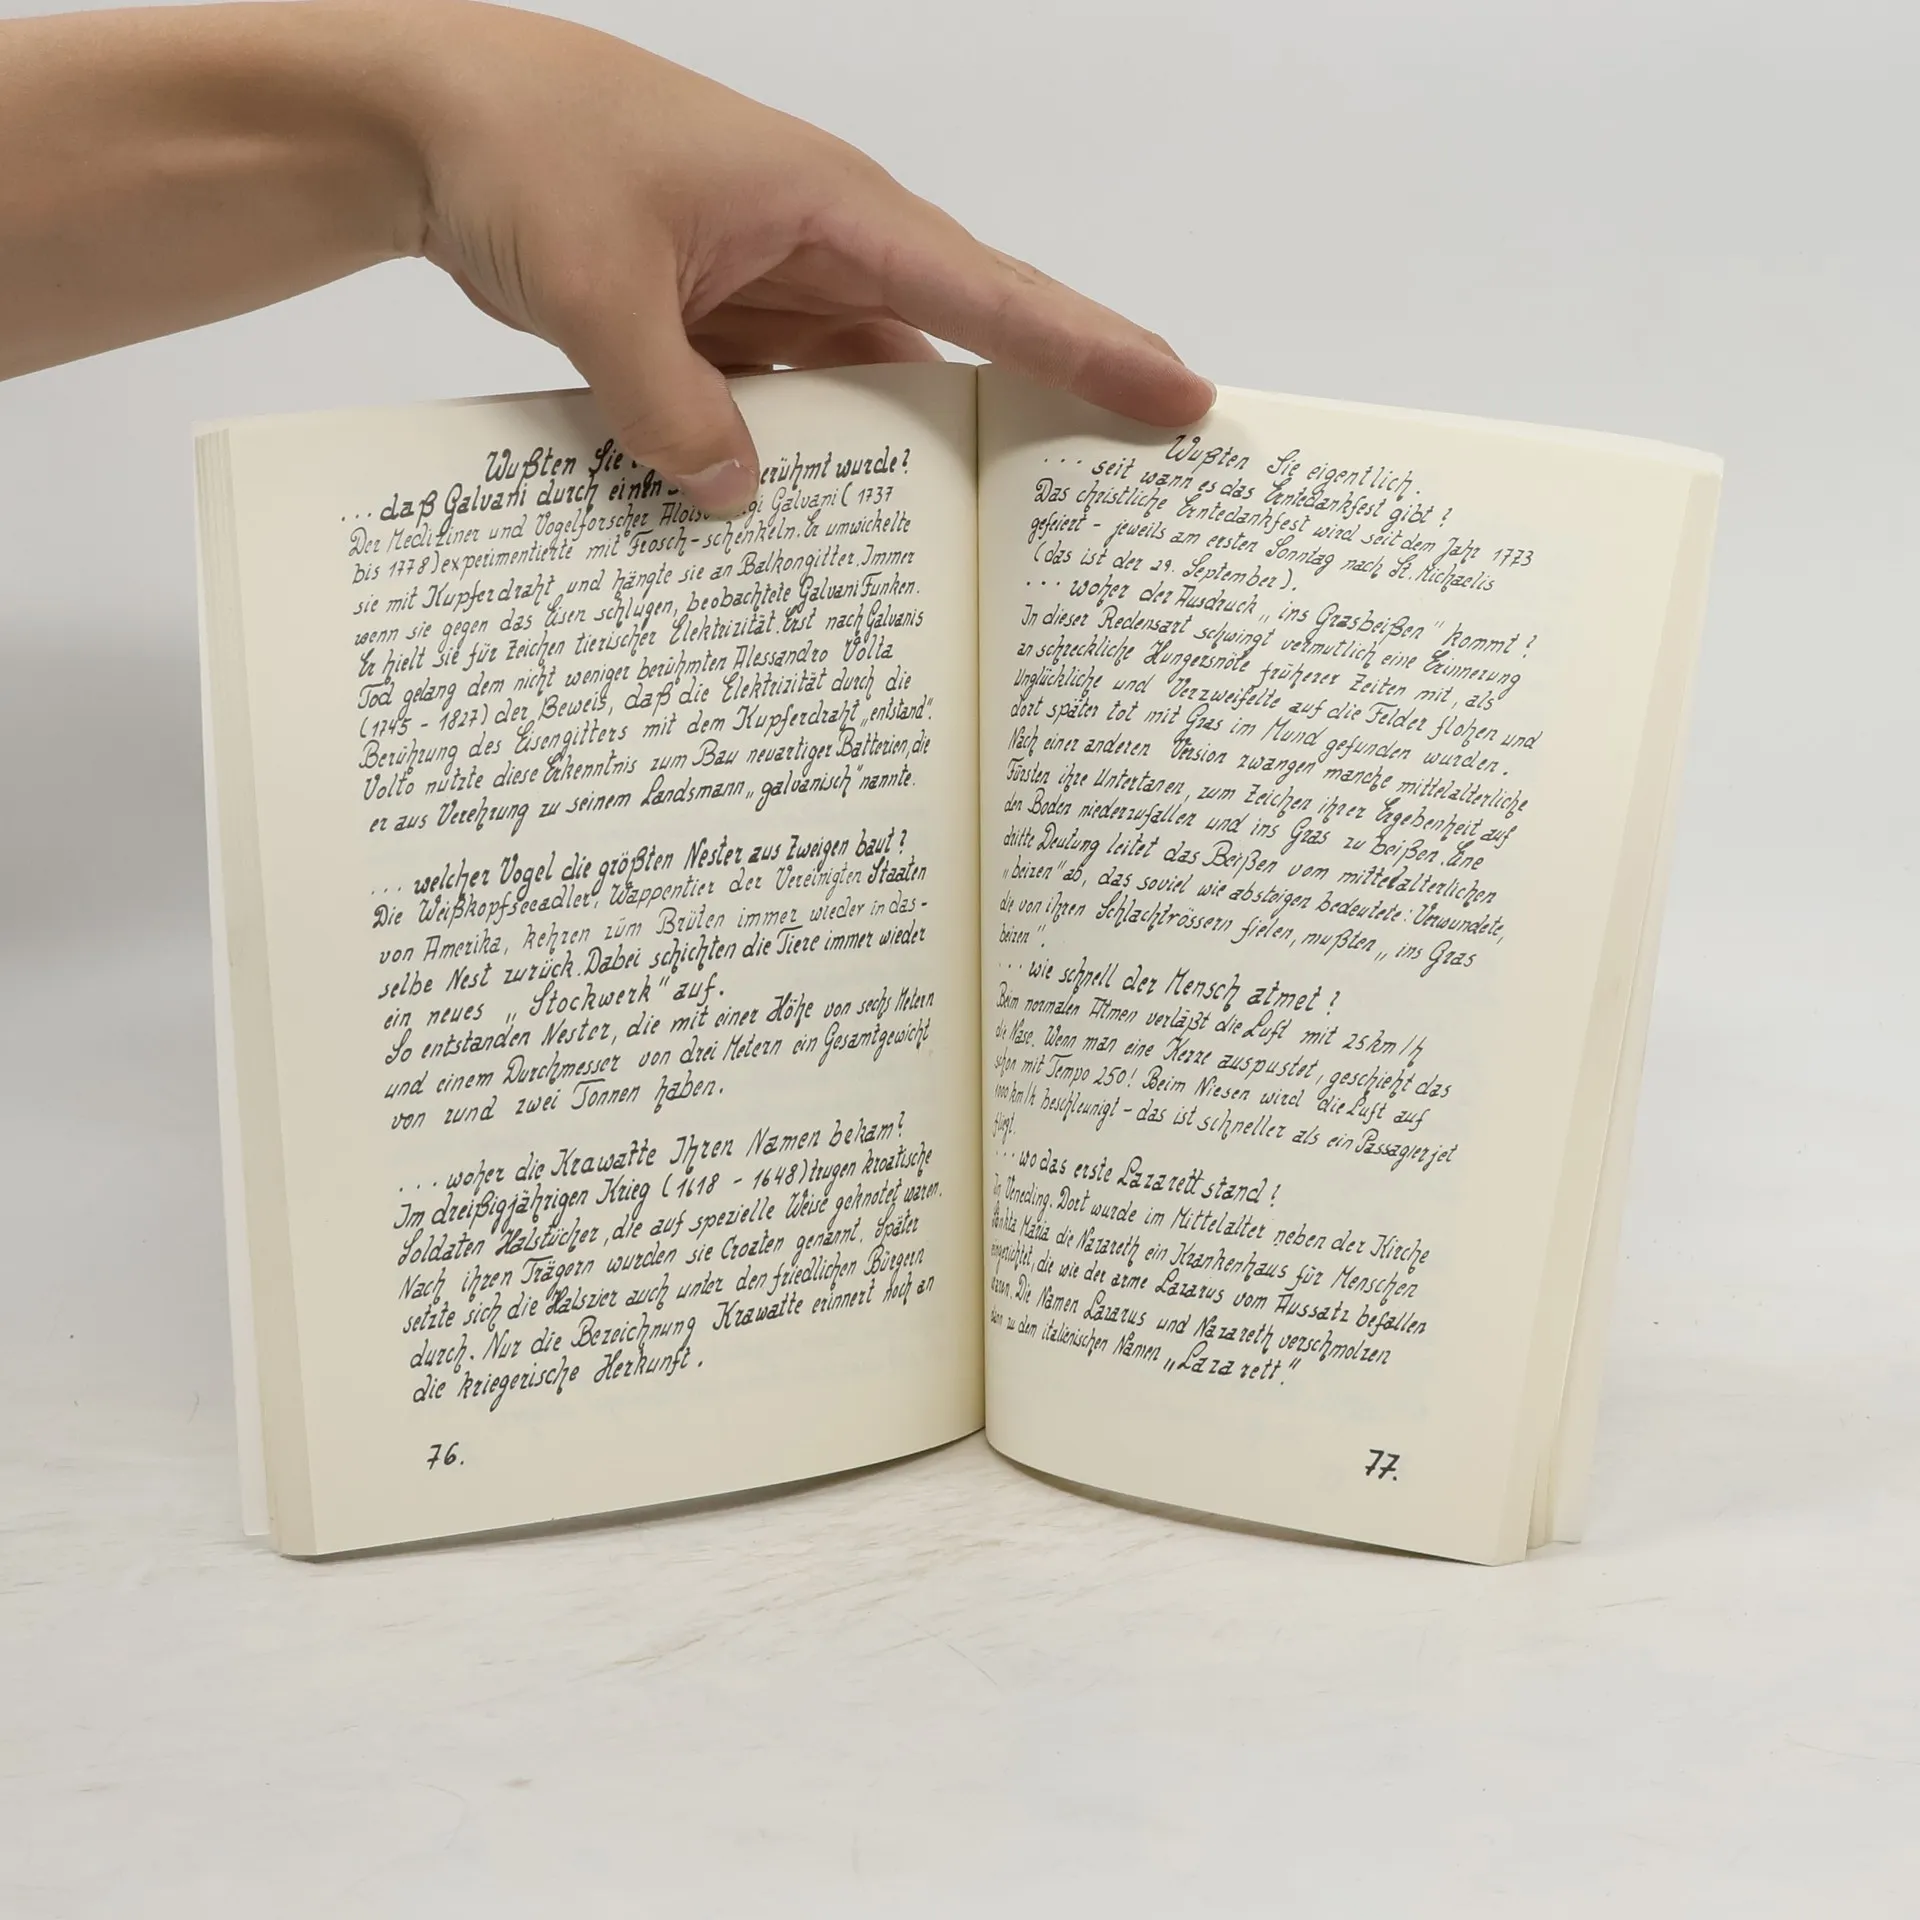 Wußten Sie
... daß Galvani durch einen berühmt wurde?
Der Mediziner und Vogelforscher Aloiso Galvani (1737
bis 1778) experimentierte mit Frosch-schenkeln. Er umwickelte
sie mit Kupferdraht und hängte sie an Balkongitter. Immer
wenn sie gegen das Eisen schlugen, beobachtete Galvani Funken.
Er hielt sie für Zeichen tierischer Elektrizität. Erst nach Galvanis
Tod gelang dem nicht weniger berühmten Alessandro Volta
(1745 - 1827) der Beweis, daß die Elektrizität durch die
Berührung des Eisengitters mit dem Kupferdraht „entstand".
Volto nutzte diese Erkenntnis zum Bau neuartiger Batterien, die
er aus Verehrung zu seinem Landsmann „galvanisch" nannte.
... welcher Vogel die größten Nester aus Zweigen baut?
Die Weißkopfseeadler, Wappentier der Vereinigten Staaten
von Amerika, kehren zum Brüten immer wieder in das-
selbe Nest zurück. Dabei schichten die Tiere immer wieder
ein neues „Stockwerk" auf.
So entstanden Nester, die mit einer Höhe von sechs Metern
und einem Durchmesser von drei Metern ein Gesamtgewicht
von rund zwei Tonnen haben.
... woher die Krawatte Ihren Namen bekam?
Im dreißigjährigen Krieg (1618 - 1648) trugen kroatische
Soldaten Halstücher, die auf spezielle Weise geknotet waren.
Nach ihren Trägern wurden sie Croaten genannt. Später
setzte sich die Halszier auch unter den friedlichen Bürgern
durch. Nur die Bezeichnung Krawatte erinnert noch an
die kriegerische Herkunft.
76.
Wußten Sie eigentlich.
... seit wann es das Erntedankfest gibt?
Das christliche Erntedankfest wird seit dem Jahr 1773
gefeiert - jeweils am ersten Sonntag nach St. Michaelis
(das ist der 29. September).
... woher der Ausdruck „ins Grasbeißen" kommt?
In dieser Redensart schwingt vermutlich eine Erinnerung
an schreckliche Hungersnöte früherer Zeiten mit, als
Unglückliche und Verzweifelte auf die Felder flohen und
dort später tot mit Gras im Mund gefunden wurden.
Nach einer anderen Version zwangen manche mittelalterliche
Fürsten ihre Untertanen, zum Zeichen ihrer Ergebenheit auf
den Boden niederzufallen und ins Gras zu beißen. Eine
dritte Deutung leitet das Beißen vom mittelalterlichen
„beizen" ab, das soviel wie absteigen bedeutete: Verwundete,
die von ihren Schlachtrössern fielen, mußten „ins Gras
beizen".
... wie schnell der Mensch atmet?
Beim normalen Atmen verläßt die Luft mit 25 km/h
die Nase. Wenn man eine Kerze auspustet, geschieht das
schon mit Tempo 250! Beim Niesen wird die Luft auf
1000 km/h beschleunigt - das ist schneller als ein Passagierjet
fliegt.
... wo das erste Lazarett stand?
In Venedig. Dort wurde im Mittelalter neben der Kirche
Sankta Maria die Nazareth ein Krankenhaus für Menschen
eingerichtet, die wie der arme Lazarus vom Aussatz befallen
waren. Die Namen Lazarus und Nazareth verschmolzen
dann zu dem italienischen Namen „Lazarett."
77.